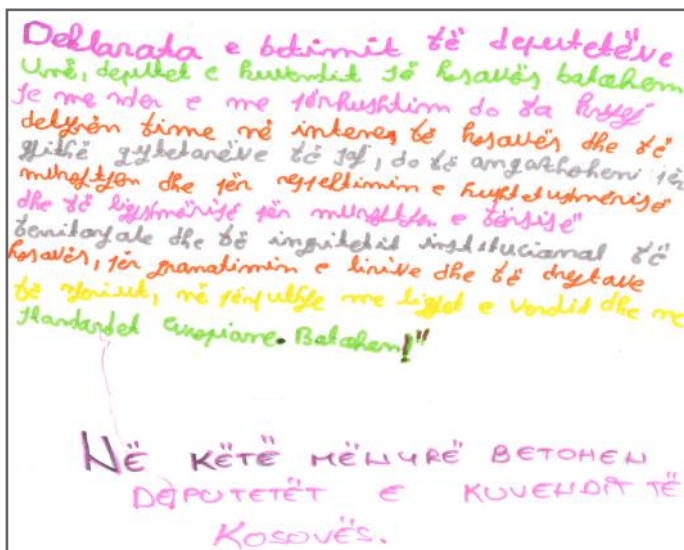 Deklarata e betimit të deputetëve
Unë, deputet e kuvendit të kosavës batohem
se me nder e me përkushtim do ta kryej
detyrën time në interes të kosavës dhe të
gjithë qytetarëve të saj, do të angazhohem për
mbrojtjen dhe për respektimin e kushtetushmërisë
dhe të ligjshmërisë për mbrojtjen e tërsisë"
territoriale dhe të ingritetit institucianal të
kosavës, për garantimin e lirive dhe të drejtave
të njeriut, në përputhje me ligjet e vendit dhe me
standardet evropiane. Batohem!"
NË KËTË MËNYRË BETOHEN
DEPUTETËT E KUVENDIT TË
KOSOVËS.